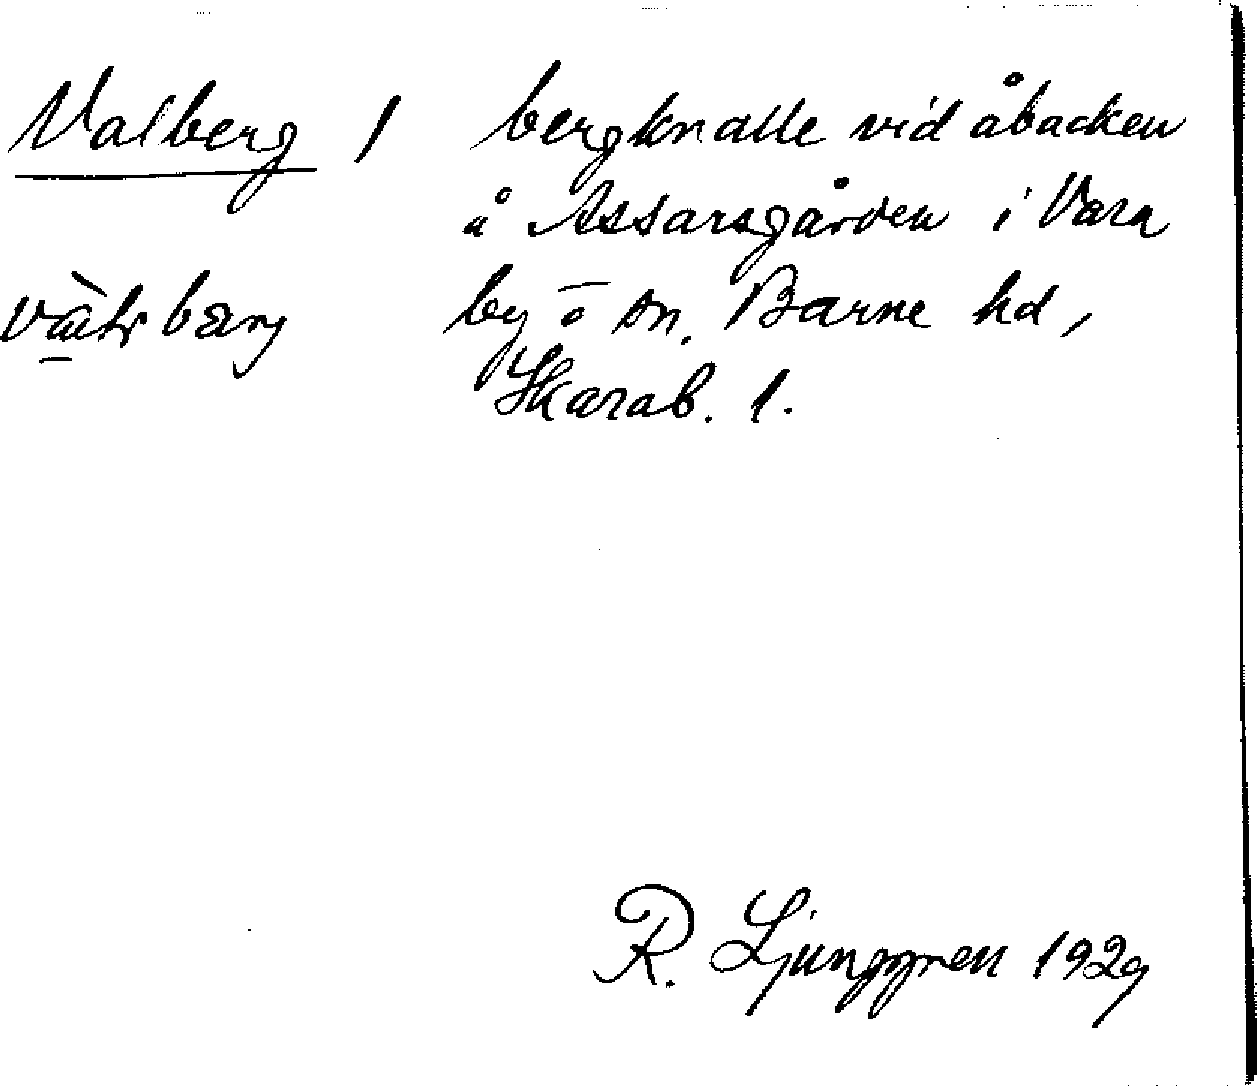 Valberg /
bergknalle vid åbacken
å Assarsgården i Vara
by o sn. Barne hd,
Skarab. l.
R. Ljunggren 1929